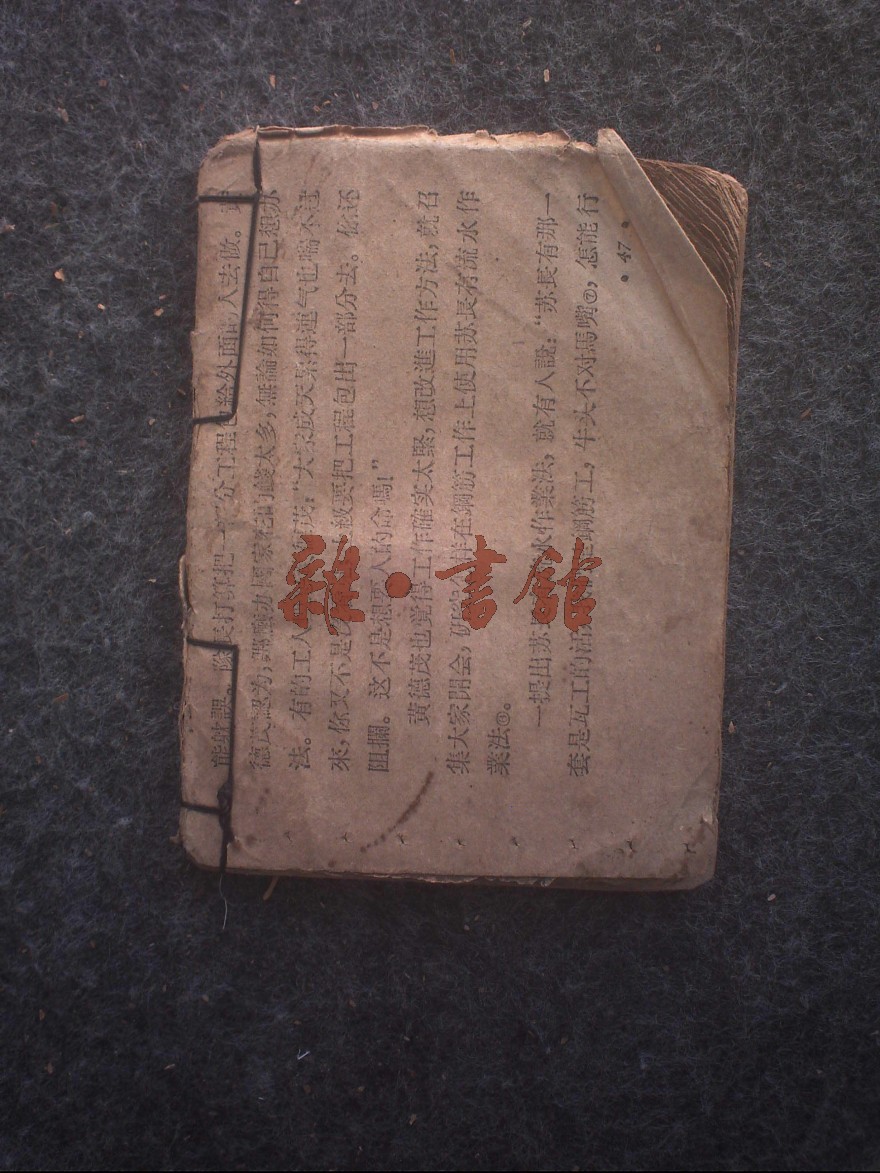 能耽誤。隊長打算把一部分工程包給外面的人去做。黃
德茂認为,那酸办國家花的錢太多,無論如何得自己想办
法。有的工人
茂:“大家成天累得連气也喘不过
來,你又不是沒
上級要把工程包出一部分去。你还
阻攔。这不是想要人的命嗎!”
黃德茂也覚得工作確实太緊,想改進工作方法,就召
集大家開会,研究
在鋼筋工作上使用苏長有流水作
業法㊀。
一提出苏長
水作業法,就有人說:“苏長有那一
套是瓦工的活
是鋼筋工,牛头不对馬嘴㊁,怎能行
• 47 •
雜·書館